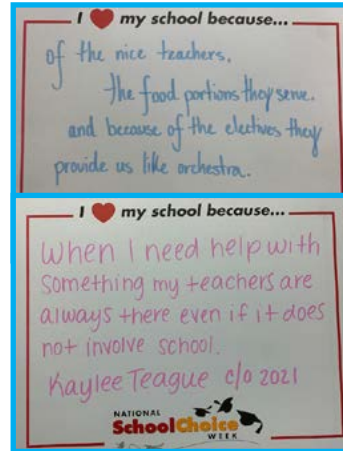 I ❤ my school because...
of the nice teachers,
the food portions they serve.
and because of the electives they
provide us like orchestra.
I ❤ my school because...
When I need help with
something my teachers are
always there even if it does
not involve school.
Kaylee Teague c/o 2021
NATIONAL
SchoolChoice
WEEK